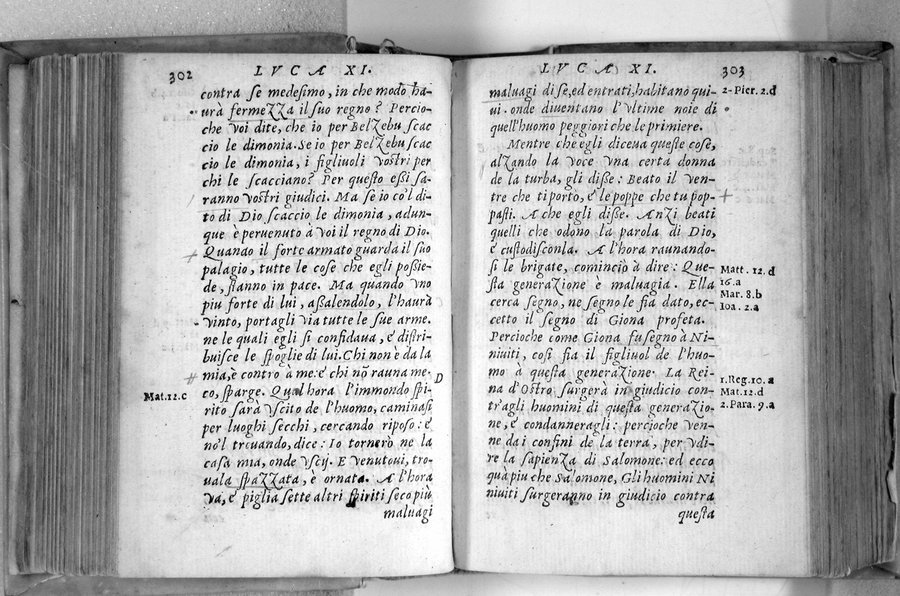 302
LVCA XI.
contra se medesimo, in che modo ha-
urà fermezza il suo regno? Percio-
che voi dite, che io per Belzebu scac
cio le dimonia. Se io per Belzebu scac
cio le dimonia, i figliuoli vostri per
chi le scacciano? Per questo essi sa-
ranno vostri giudici. Ma se io co'l di-
to di Dio scaccio le dimonia, adun-
que è peruenuto à voi il regno di Dio.
Quando il forte armato guarda il suo
palagio, tutte le cose che egli possie-
de, stanno in pace. Ma quando vno
piu forte di lui, assalendolo, l'haurà
vinto, portagli via tutte le sue arme.
ne le quali egli si confidaua, è distri-
buisce le spoglie di lui. Chi non è da la
mia, è contro à me: è chi nõ rauna me-
co, sparge. Qual hora l'immondo spi-
D
Mat.12.c
rito sarà vscito de l'huomo, caminasi
per luoghi secchi, cercando riposo: è
no'l trouando, dice: Io tornerò ne la
casa mia, onde vscij. E venutoui, tro-
uala spazzata, è ornata. A l'hora
va, è piglia sette altri spiriti seco più
maluagi
LVCA XI.
303
maluagi di se, ed entrati, habitano qui-
ui. onde diuentano l'vltime noie di
quell'huomo peggiori che le primiere.
Mentre che egli diceua queste cose,
alzando la voce vna certa donna
de la turba, gli disse: Beato il ven-
tre che ti portò, è le poppe che tu pop-
pasti. A che egli disse. Anzi beati
quelli che odono la parola di Dio,
è custodisconla. A l'hora raunando-
si le brigate, cominciò à dire: Que-
sta generazione è maluagia. Ella
cerca segno, ne segno le fia dato, ec-
cetto il segno di Giona profeta.
Percioche come Giona fu segno à Ni-
niuiti, così fia il figliuol de l'huo-
mo à questa generazione. La Rei-
na d'Ostro surgerà in giudicio con-
tr'agli huomini di questa generazio-
ne, è condanneragli: percioche ven-
ne da i confini de la terra, per vdi-
re la sapienza di Salomone: ed ecco
quà piu che Salomone, Gli huomini Ni
niuiti surgeranno in giudicio contra
questa
2. Pier. 2.d
Matt. 12.d
16.a
Mar. 8.b
Ioa. 2.a
1. Reg. 10. a
Mat. 12.d
2. Para. 9.a